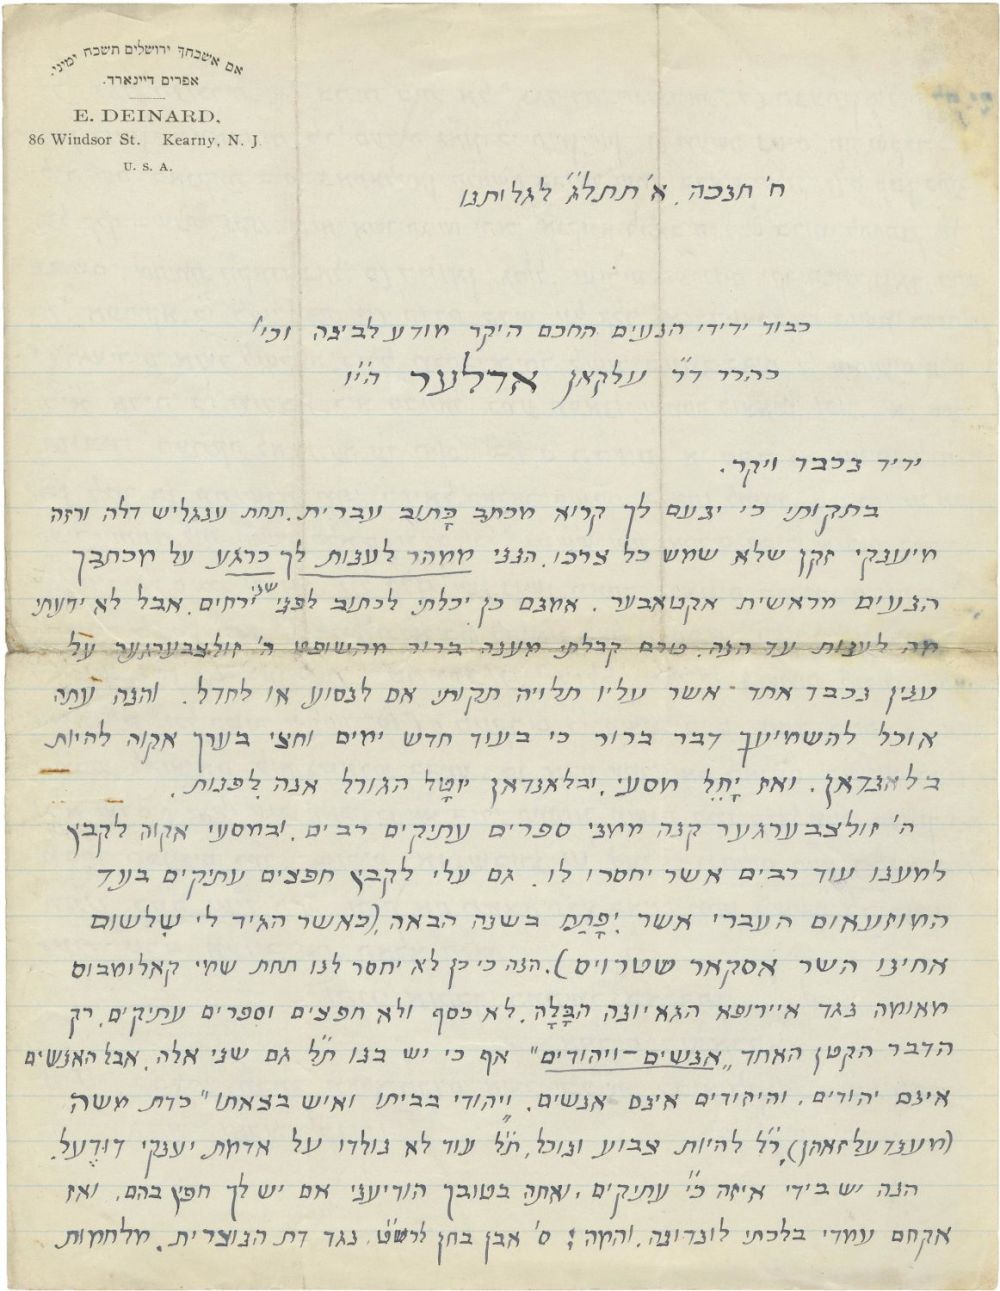 אם אשכחך ירושלים תשכח ימיני.
אפרים דיינארד.
E. DEINARD,
86 Windsor St. Kearny, N. J.
U. S. A.
ח' חנכה, א' תתל"ג לגלותנו
כבוד ידידי הנעים החכם היקר מודע לבינה וכו'
כהרר ד"ר עלקאן אדלער הי"ו
ידיד נכבד ויקר.
בתקותי כי ינעם לך קריא מכתב כָּתוב עברית, תחת ענגליש דלה ורזה
מיענקי זקן שלא שמש כל צרכו, הנני ממהר לענות לך כרגע על מכתבך
הנעים מראשית אקטאבער. אמנם כן יכלתי לכתוב לפני שני ירחים, אבל לא ידעתי
מה לענות עד הנה, טרם קבלתי מענה ברור מהשופט ה' זולצבערגער על
ענין נכבד אחד אשר עליו תלויה תקותי אם לנסוע או לחדל. והנה עתה
אוכל להשמיעך דבר ברור כי בעוד חדש ימים וחצי בערך אקוה להיות
בלאנדאן. ואז יָחֵל מסעי, ובלאנדאן יוטָל הגורל אנה לפנות.
ה' זולצבערגער קנה ממני ספרים עתיקים רבים, ובמסעי אקוה לקבץ
למענו עוד רבים אשר יחסרו לו. גם עלי לקבץ חפצים עתיקים בעד
המוזעאום העברי אשר יִפָּתַח בשנה הבאה, (כאשר הגיד לי שלשום
אחינו השר אסקאר שטרויס). הנה כי כן לא יחסר לנו תחת שמי קאלומבוס
מאומה נגד איירופא הגאיונה הבָּלָה, לא כסף ולא חפצים וספרים עתיקים, רק
הדבר הקטן האחד "אנשים־ויהודים" אף כי יש בנו ת"ל גם שני אלה, אבל האנשים
אינם יהודים, והיהודים אינם אנשים. "ויהודי בביתו ואיש בצאתו" כדת משה
(מענדעלזאהן), ר"ל להיות צבוע ונוכל, ת"ל עוד לא נולדו על אדמת יענקי דודעל.
הנה יש בידי איזה כ"י עתיקים, ואתה בטובך הודיעני אם יש לך חפץ בהם, ואז
אקחם עמדי בלכתי לונדונה, והמה: ס' אבן בחן נגד דת הנוצרית. מלחמות